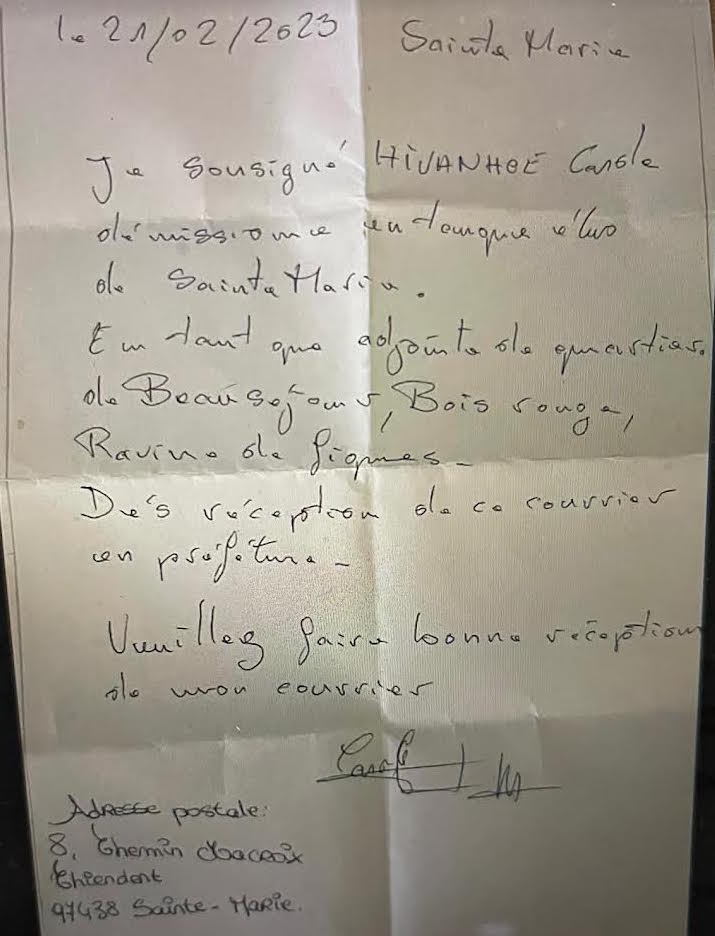 le 21/02/2023 Sainte Marie
Je sousigné HIVANHOE Carole
démissionne en tanque élue
de Sainte Marie.
En tant que adjointe de quartier.
de Beauséjour, Bois rouge,
Ravine de figues_
Dés réception de ce courrier
en préféture_
Veuillez faire bonne réception
de mon courrier
Adresse postale:
8, Chemin Lacroix
Chiendent
97438 Sainte-Marie.